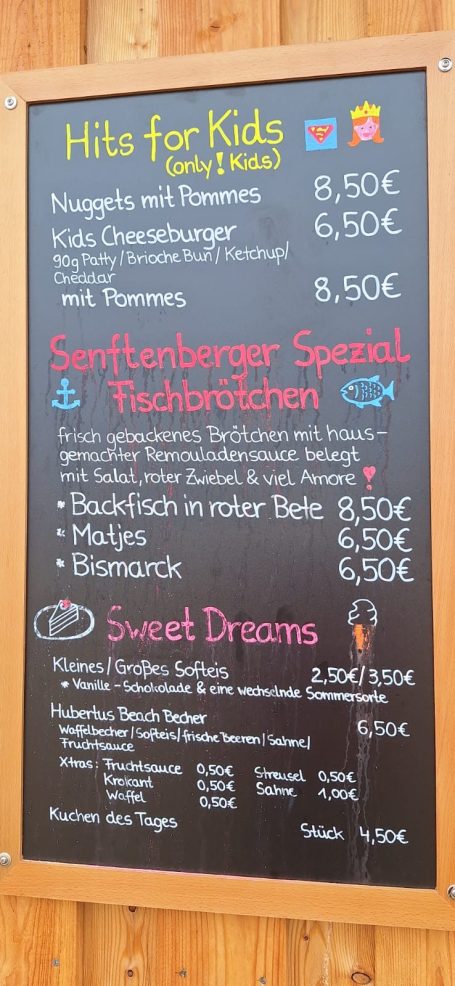 Hits for Kids
(only! Kids)
Nuggets mit Pommes 8,50€
Kids Cheeseburger 6,50€
90g Patty/Brioche Bun/Ketchup/
Cheddar
mit Pommes 8,50€
Senftenberger Spezial
Fischbrötchen
frisch gebackenes Brötchen mit haus-
gemachter Remouladensauce belegt
mit Salat, roter Zwiebel & viel Amore
* Backfisch in roter Bete 8,50€
* Matjes 6,50€
* Bismarck 6,50€
Sweet Dreams
Kleines/Großes Softeis 2,50€/3,50€
* Vanille-Schokolade & eine wechselnde Sommersorte
Hubertus Beach Becher 6,50€
Waffelbecher/Softeis/frische Beeren/Sahne/
Fruchtsauce
Xtras: Fruchtsauce 0,50€ Streusel 0,50€
Krokant 0,50€ Sahne 1,00€
Waffel 0,50€
Kuchen des Tages Stück 4,50€